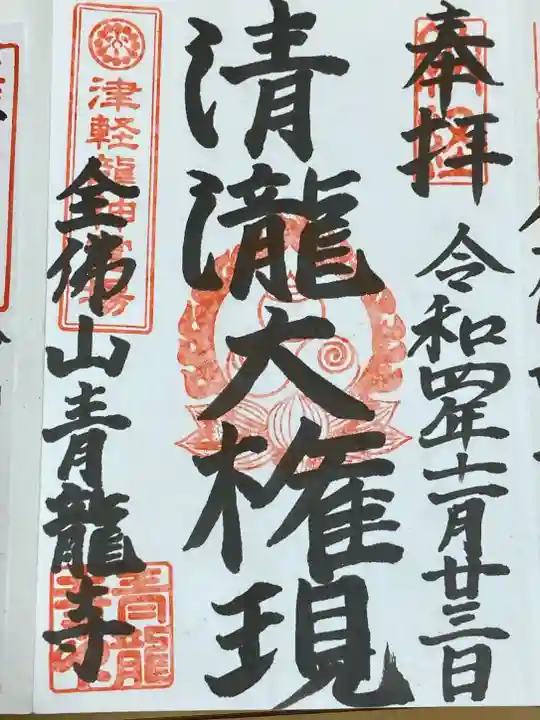 奉拝
令和四年十一月廿三日
清瀧大権現
津軽龍神霊場
全佛山青龍寺
青龍